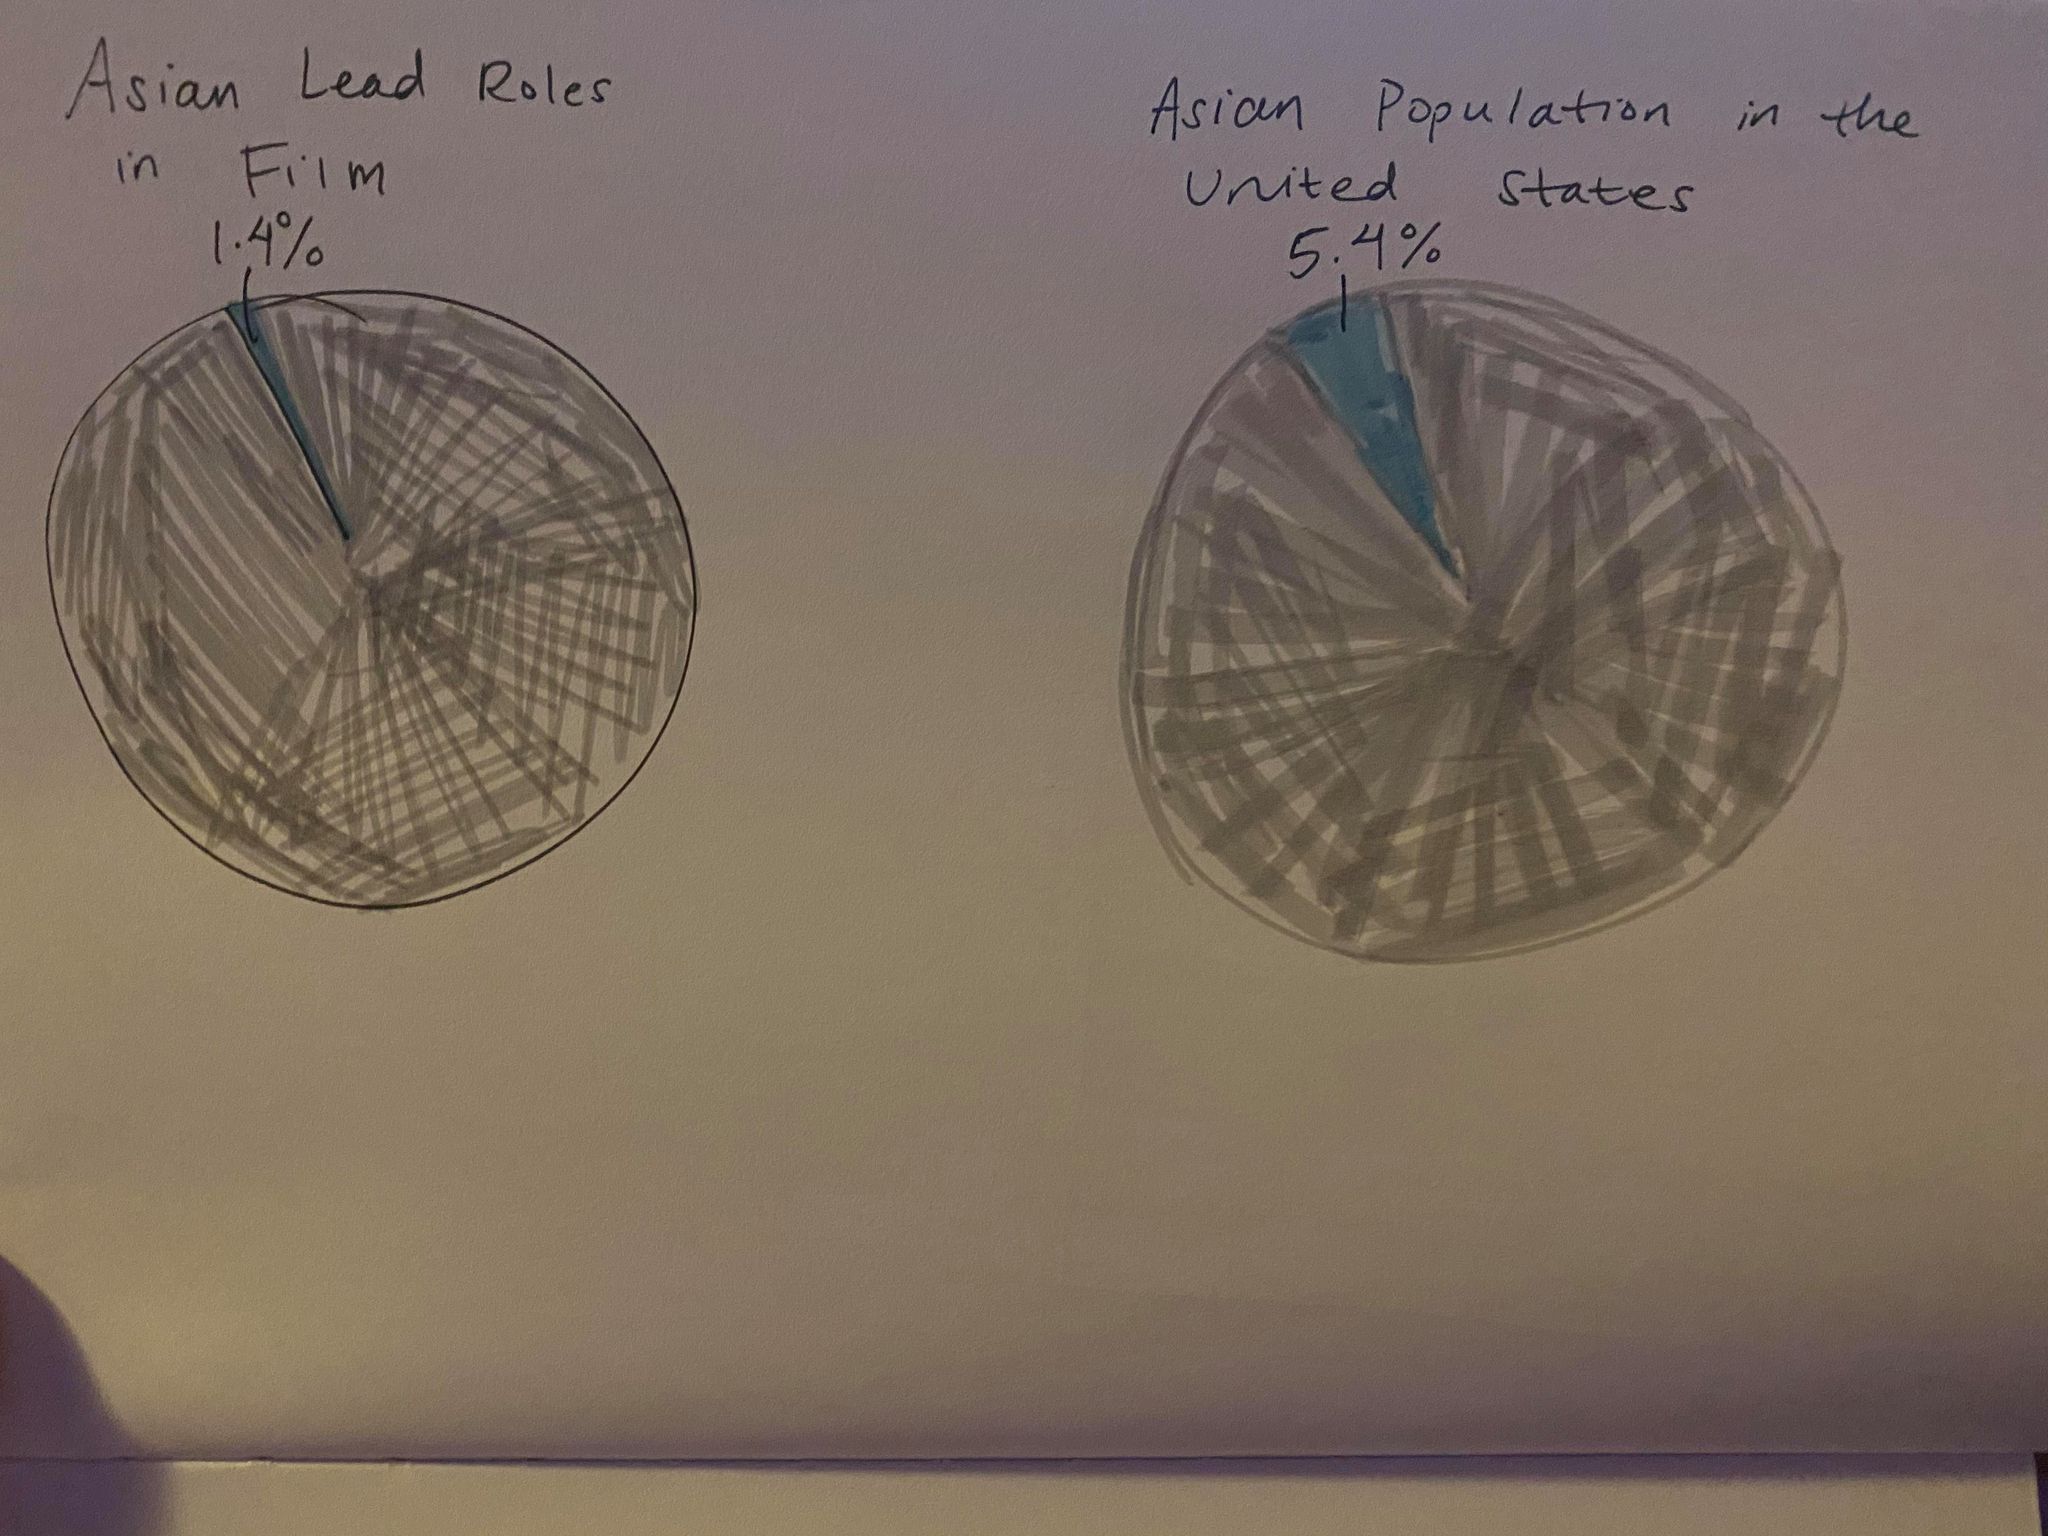 Asian Lead Roles
in Film
1.4%
Asian Population in the
United States
5.4%